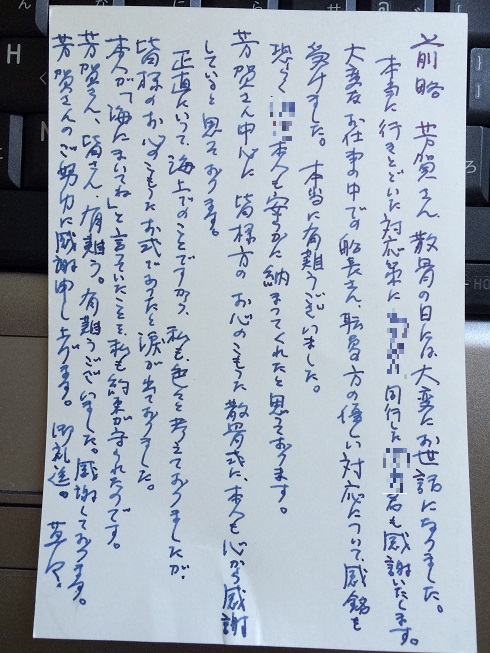 前略 芳賀さん、散骨の日には、大変にお世話になりました。
本当に行きとどいた対応策に 同行した 名も感謝いたします。
大変なお仕事の中での船長さん、職員方の優しい対応について、感銘を
受けました。本当に有難うございました。
恐らく 本人も安らかに納まってくれたと思っております。
芳賀さん中心に皆様方のお心のこもった散骨式に、本人も心から感謝
していると思っております。
正直にいって、海上でのことですから、私も色々と考えておりましたが、
皆様のお心のこもったお式であったと涙が出ておりました。
本人が「海にまいてね」と言っていたことを、私も約束が守られたのです。
芳賀さん、皆さん、有難う。有難うございました。感謝しております。
芳賀さんのご努力に感謝申し上げます。御礼迄。草々